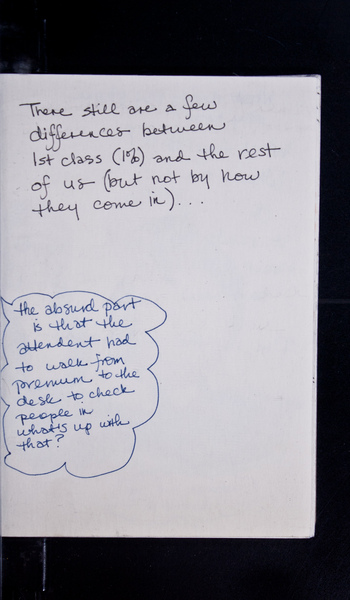 There still are a few
differences between
1st class (1%) and the rest
of us (but not by how
they come in)...
the absurd part
is that the
attendent had
to walk from
premium to the
desk to check
people in
what's up with
that?